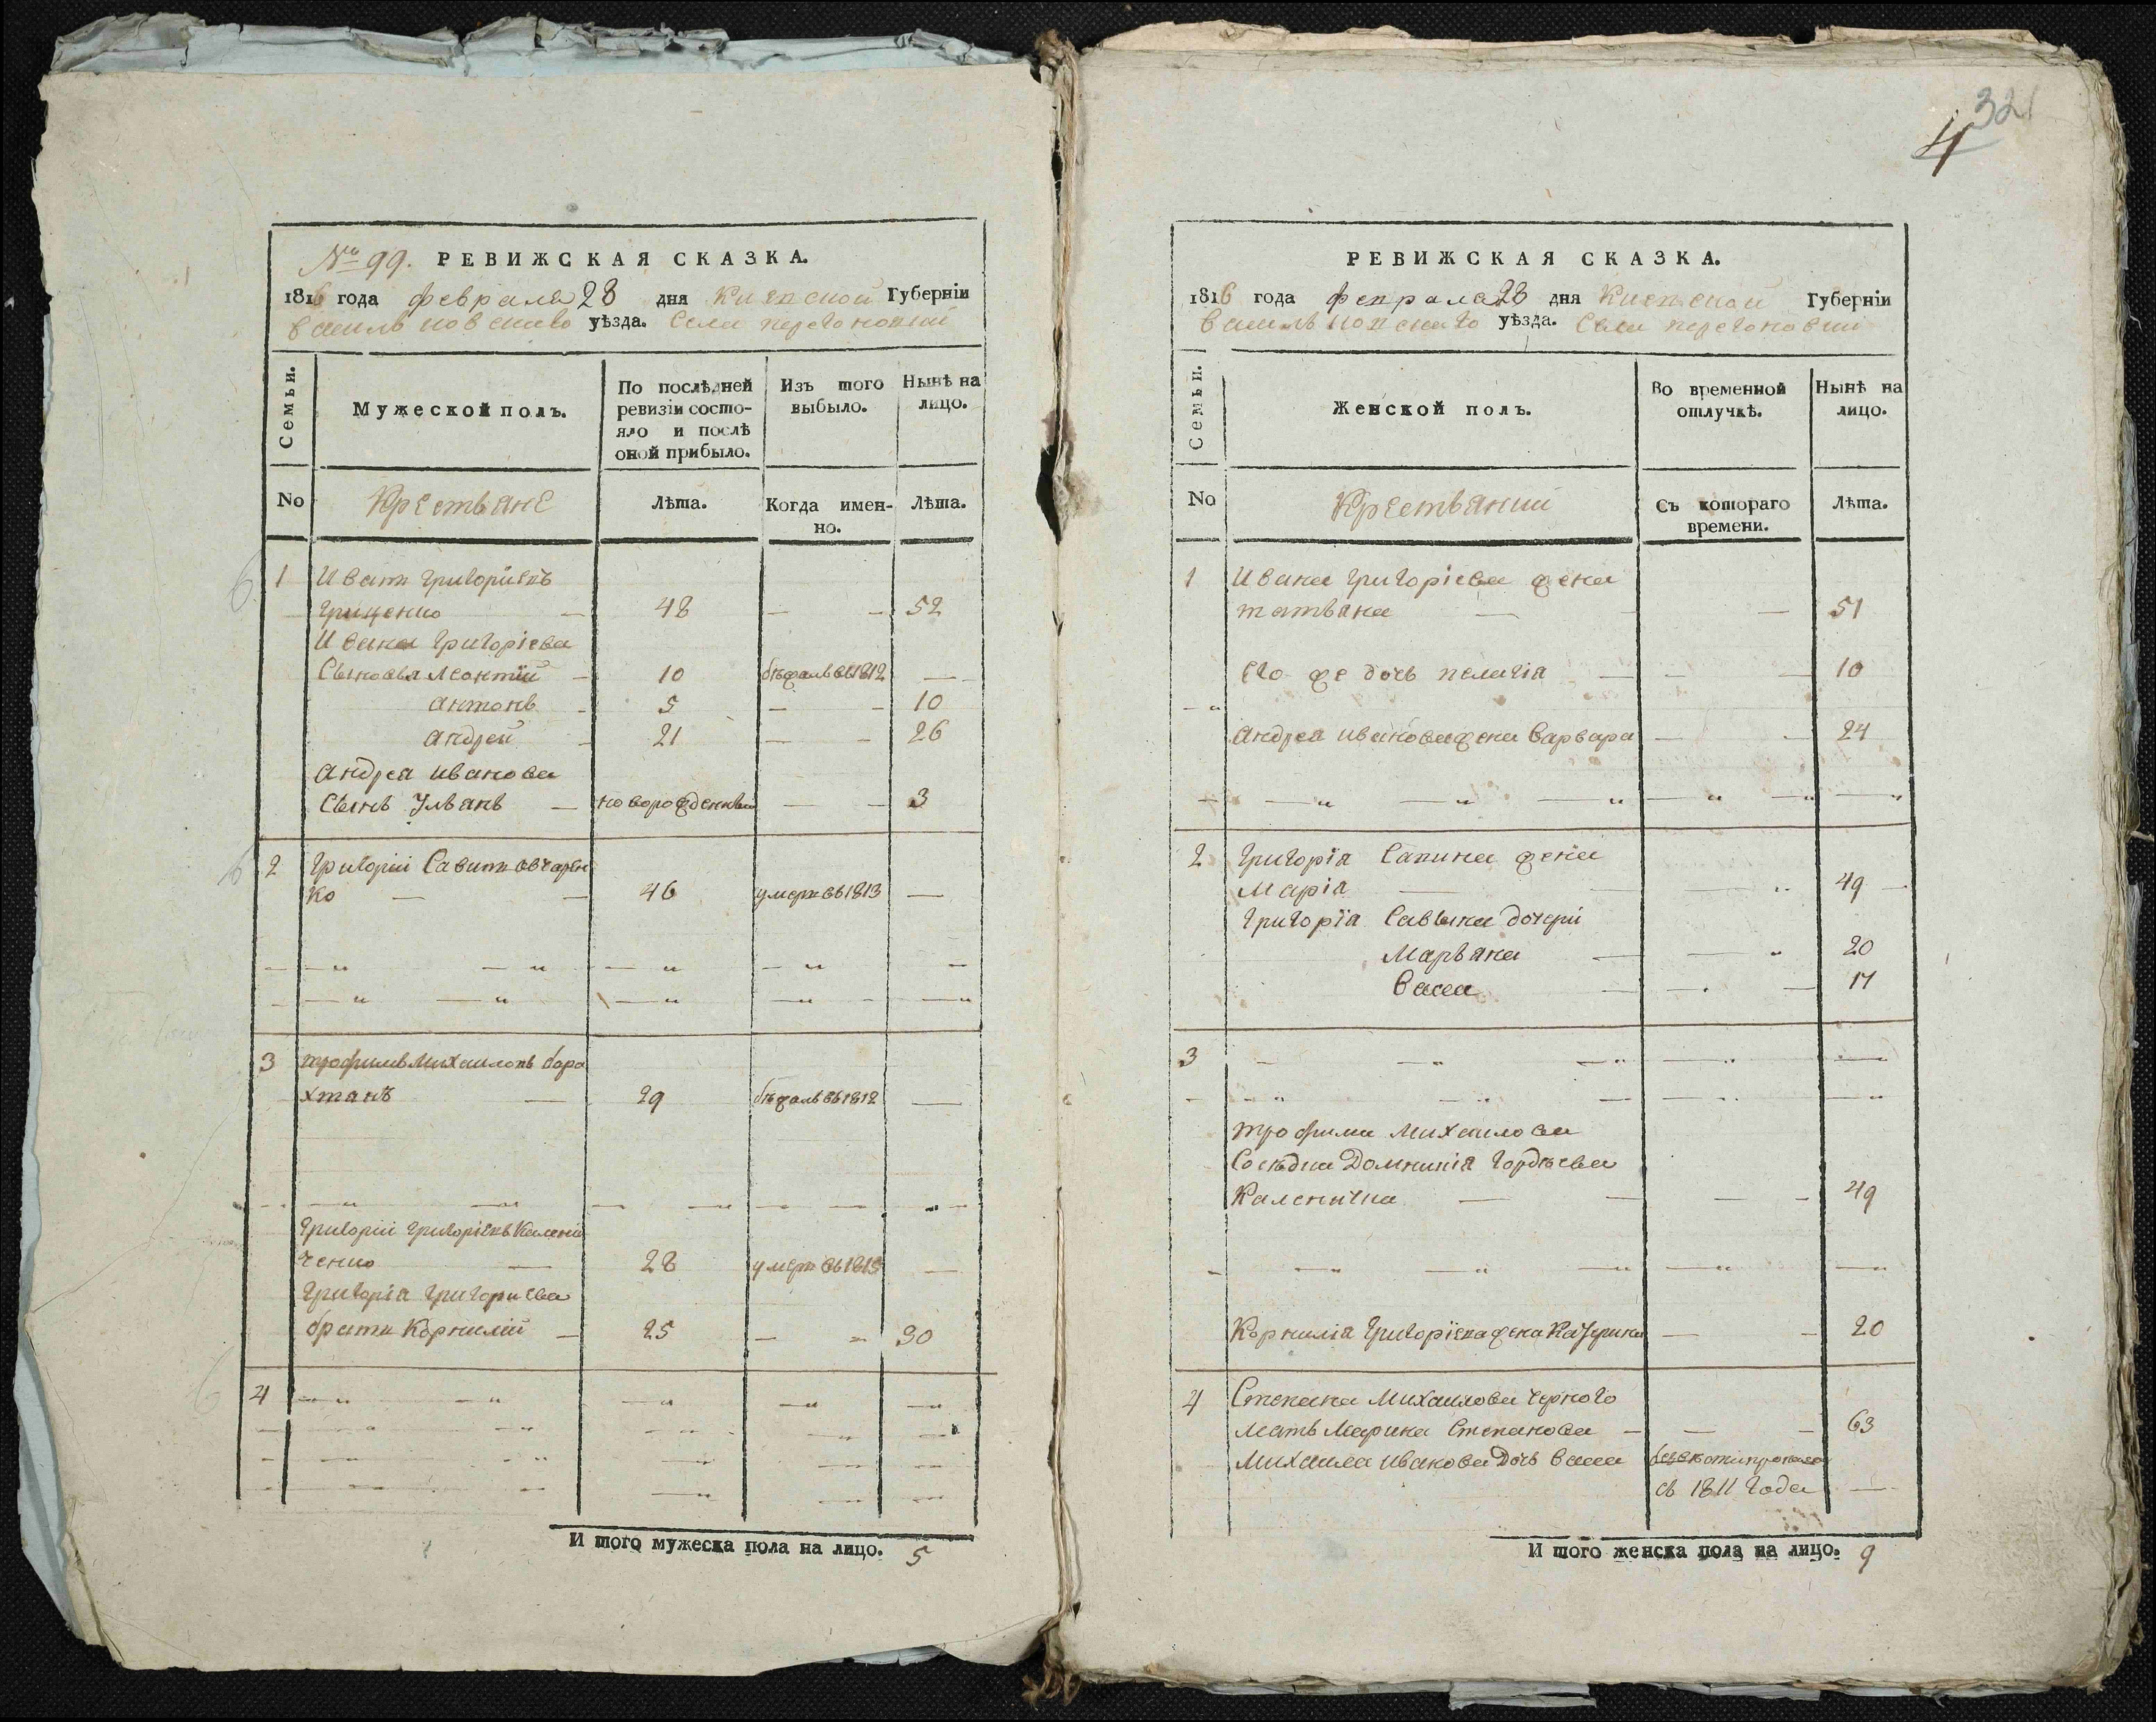 № 99. РЕВИЖСКАЯ СКАЗКА.
1816 года февраля 28 дня Киевской Губернiи
васильковскаго уѣзда. Села перегоновки
Семьи.
Мужеской полъ.
По послѣдней ревизiи состояло и послѣ оной прибыло.
Изъ того выбыло.
Нынѣ на лицо.
No
Крестьяне
Лѣта.
Когда именно.
Лѣта.
1 Иванъ григориевъ
грищенко — 48 — — 52
Ивана григорiева
Сыновья Леонтiй — 10 бѣжалъ въ 1812 —
антонъ — 5 — — 10
андрей — 21 — — 26
андрея иванова
Сынъ Ульянъ — новорожденный — — 3
2 григорiй Савинъ овчарен
ко — — 46 умеръ въ 1813 —
3 трофимъ михаиловъ бара
хтянъ — 29 бѣжалъ въ 1812 —
григорiй григорiевъ Калени
ченко — 28 умеръ въ 1815 —
григорiя григориева
братъ Корнилiй — 25 — — 30
4
И того мужеска пола на лицо. 5
32
4
РЕВИЖСКАЯ СКАЗКА.
1816 года февраля 28 дня Киевской Губернiи
васильковскаго уѣзда. Села перегоновки
Семьи.
Женской полъ.
Во временной отлучкѣ.
Нынѣ на лицо.
No
Крестьянки
Съ котораго времени.
Лѣта.
1 Ивана григорiева жена
татьяна — — 51
его же дочь пелагiя — — — 10
андрея иванова жена варвара — — 24
2 григорiя Савина жена
Марiя — — — 49
григорiя Савына дочери
Марьяна — — 20
васса — — — 17
3
трофима михаилова
Сосѣдка Домникiя гордѣева
Каленична — — — — 49
Корнилiя григорiева жена Катерина — — 20
4 Степана михаилова черного
мать Марина Степанова — — — 63
михаила иванова дочь васса
съ 1811 года —
И того женска пола на лицо. 9